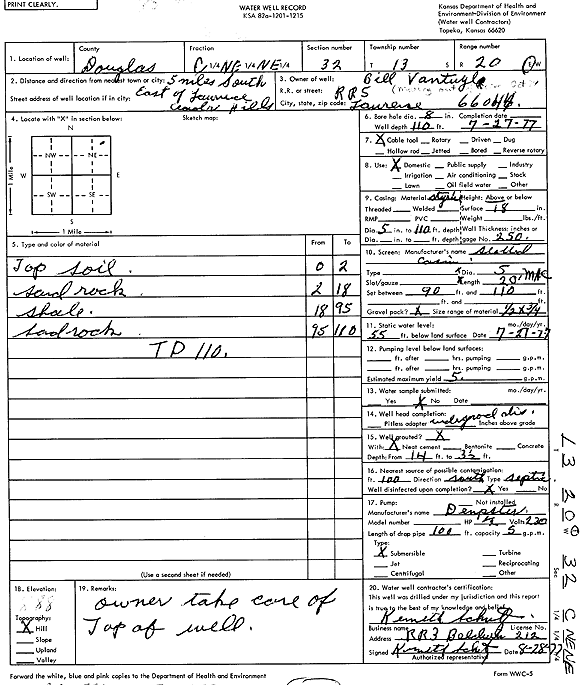 PRINT CLEARLY.
WATER WELL RECORD
KSA 82a-1201-1215
Kansas Department of Health and
Environment-Division of Environment
(Water well Contractors)
Topeka, Kansas 66620
1. Location of well: County Douglas Fraction C 1/4 NE 1/4 NE 1/4 Section number 32 Township number T 13 S Range number R 20 E/W
2. Distance and direction from nearest town or city: 5 miles South
East of Lawrence
Street address of well location if in city:
3. Owner of well: Bill Vantuyle
R.R. or street: RR5
City, state, zip code: Lawrence 66044
4. Locate with "X" in section below:
Sketch map:
N
NW NE
W E
SW SE
S
1 Mile
1 Mile
5. Type and color of material From To
Top soil. 0 2
sand rock. 2 18
shale. 18 95
sadrock. 95 110
TD 110.
(Use a second sheet if needed)
6. Bore hole dia. 8 in. Completion date
Well depth 110 ft. 7-27-77
7. X Cable tool Rotary Driven Dug
Hollow rod Jetted Bored Reverse rotary
8. Use: X Domestic Public supply Industry
Irrigation Air conditioning Stock
Lawn Oil field water Other
9. Casing: Material Height: Above or below
Threaded Welded Surface 18 in.
RMP PVC Weight lbs./ft.
Dia. 5 in. to 110 ft. depth Wall Thickness: inches or
Dia. in. to ft. depth gage No. 250.
10. Screen: Manufacturer's name slotted
Type Dia. 5
Slot/gauze Length 20
Set between 90 ft. and 110 ft.
ft. and ft.
Gravel pack? X Size range of material 1/2 x 3/4
11. Static water level: mo./day/yr.
55 ft. below land surface Date 7-27-77
12. Pumping level below land surfaces:
ft. after hrs. pumping g.p.m.
ft. after hrs. pumping g.p.m.
Estimated maximum yield 5. g.p.m.
13. Water sample submitted: mo./day/yr.
Yes X No Date
14. Well head completion:
Pitless adapter Inches above grade
15. Well grouted? X
With: X Neat cement Bentonite Concrete
Depth: From 14 ft. to 3 1/2 ft.
16. Nearest source of possible contamination:
ft. 100 Direction south Type septic
Well disinfected upon completion? X Yes No
17. Pump: Not installed
Manufacturer's name Dempster.
Model number HP 1/2 Volts 230
Length of drop pipe 100 ft. capacity 5 g.p.m.
Type:
X Submersible Turbine
Jet Reciprocating
Centrifugal Other
18. Elevation:
Topography:
X Hill
Slope
Upland
Valley
19. Remarks:
owner take care of
Top of well.
20. Water well contractor's certification:
This well was drilled under my jurisdiction and this report
is true to the best of my knowledge and belief.
Business name License No.
Address RR3 Baldwin 212
Signed Date 8-28-77
Authorized representative
Forward the white, blue and pink copies to the Department of Health and Environment
Form WWC-5
13 20 E 32 C NE NE
Sec 1/4 1/4 1/4